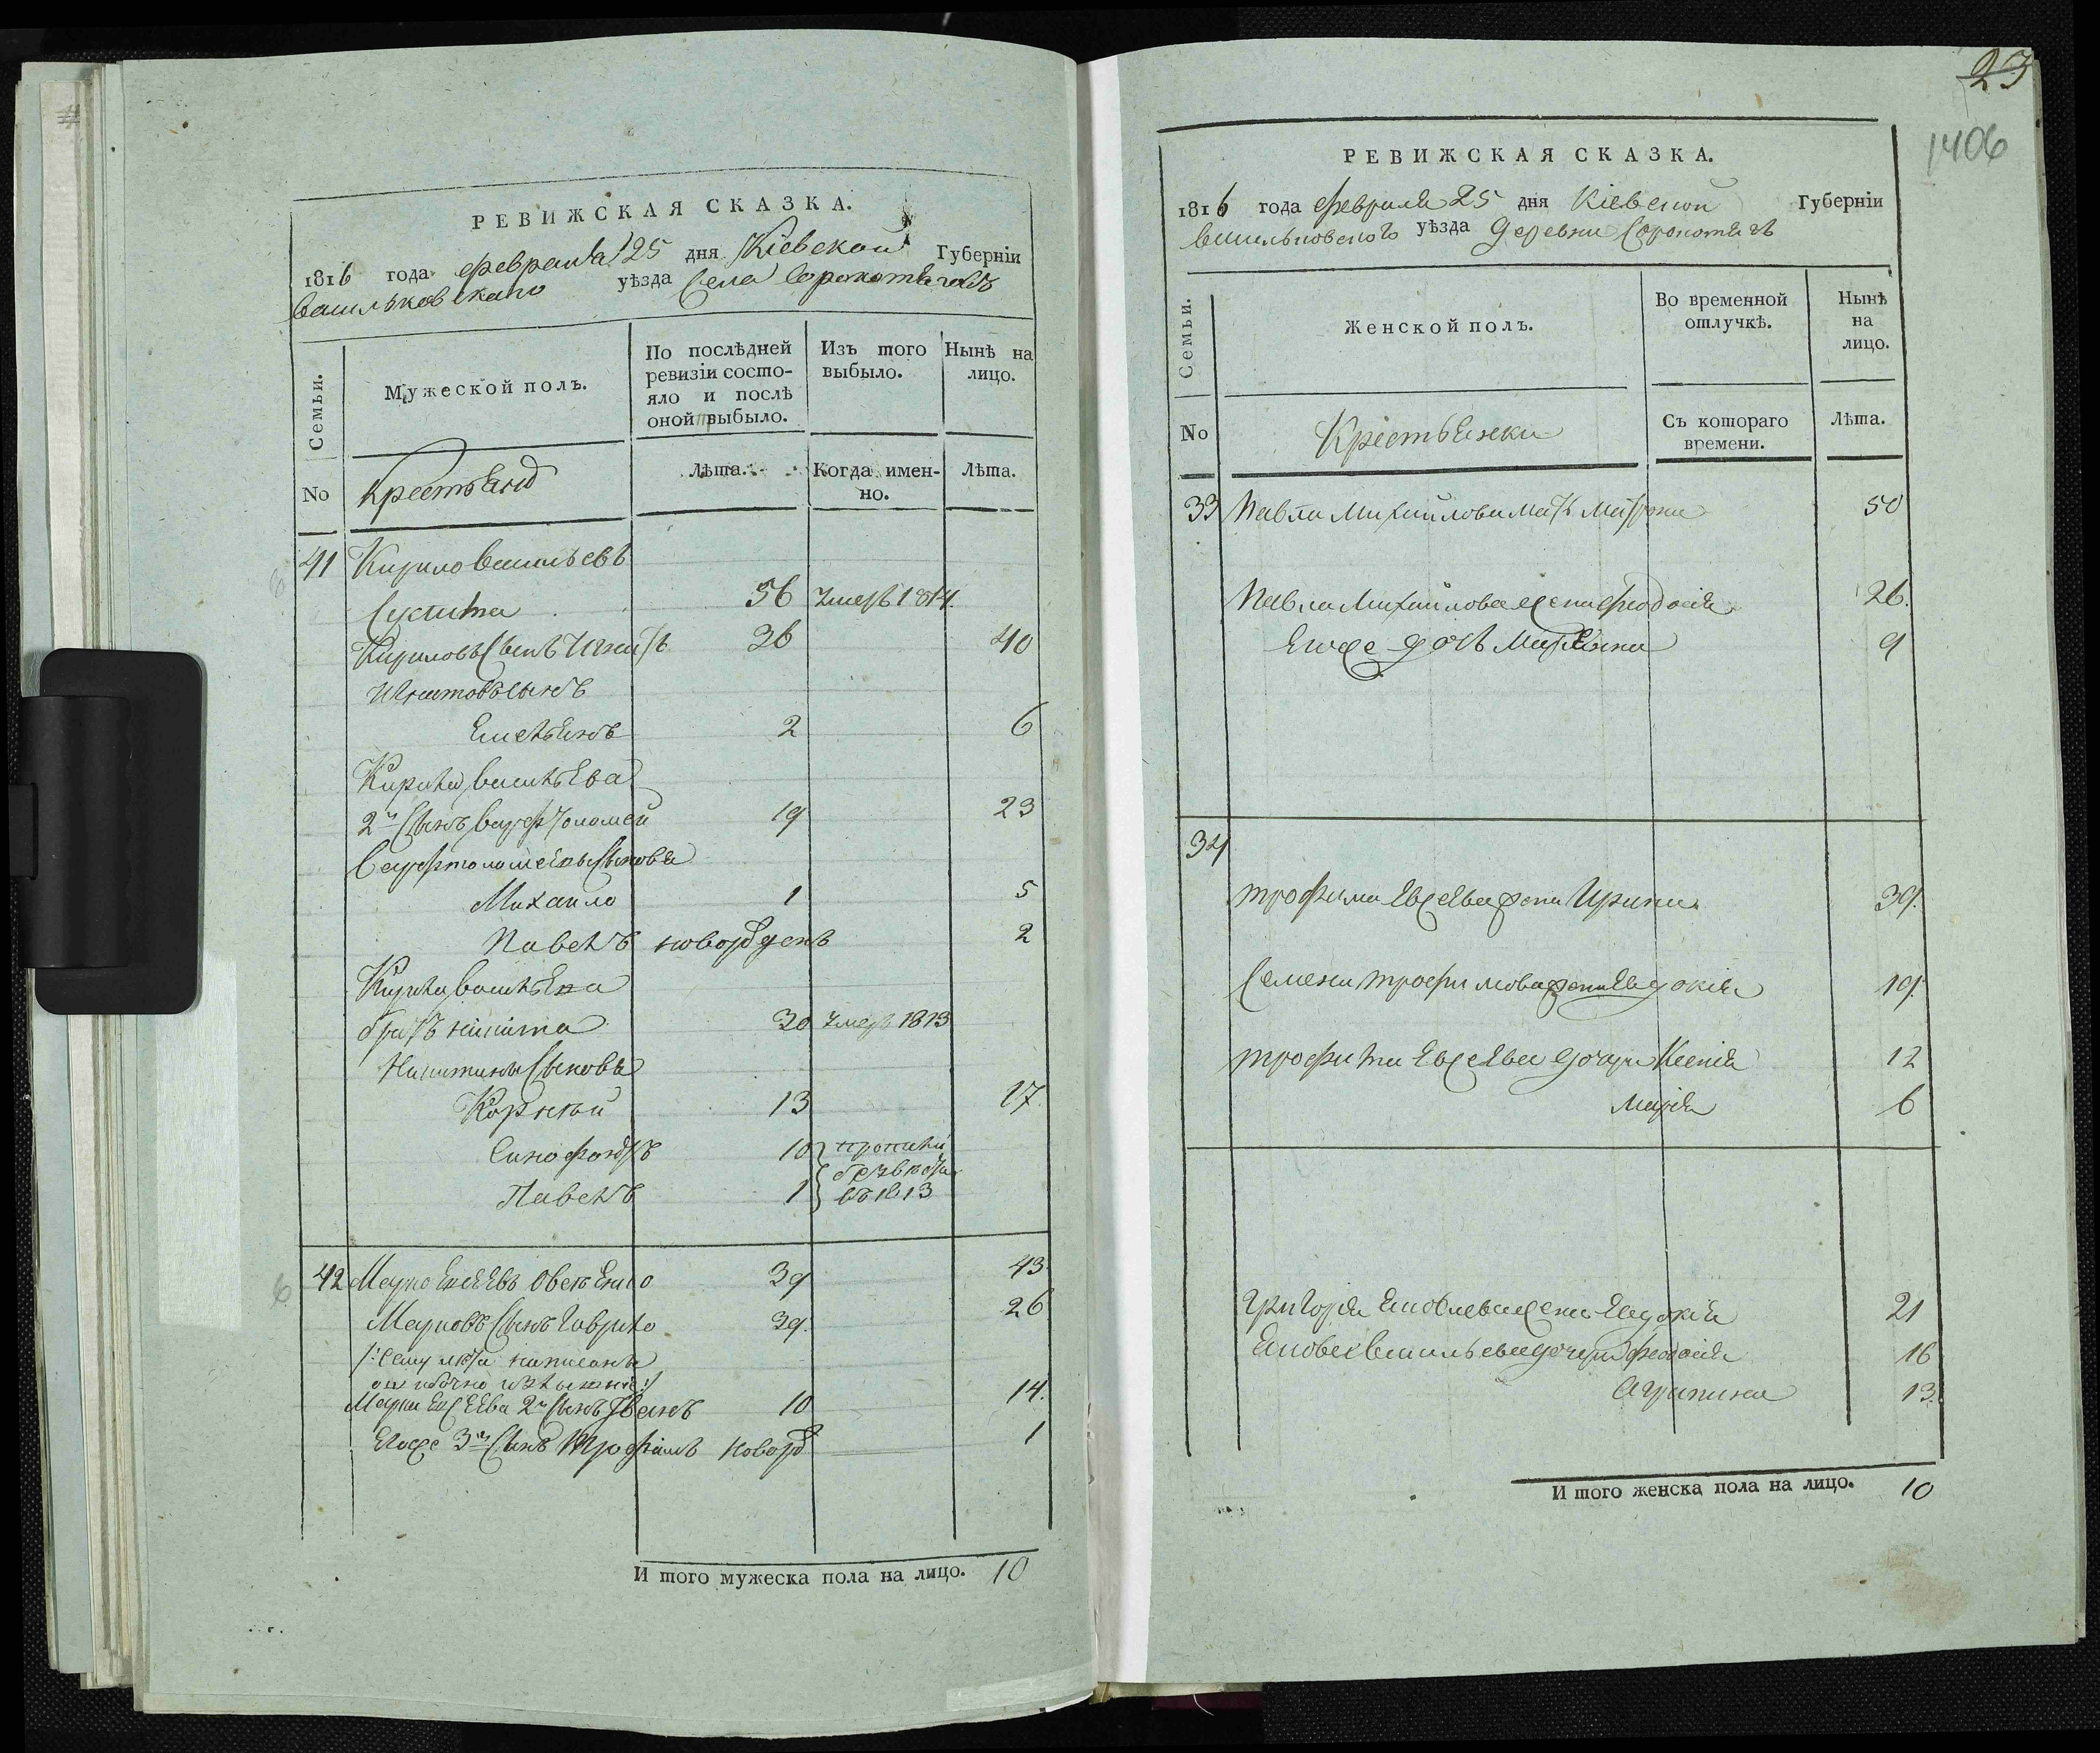 РЕВИЖСКАЯ СКАЗКА.
1816 года февраля 25 дня Кіевской Губерніи
Васильковскаго уѣзда села Сорокотягъ
Семьи.
Мужеской полъ.
По послѣдней ревизіи состояло и послѣ оной выбыло.
Изъ того выбыло.
Нынѣ на лицо.
No
Крестьянъ
Лѣта.
Когда именно.
Лѣта.
41 Кирило Васильевъ
56 Умеръ 1814.
Кириловъ Сынъ Игнатъ 36 40
Игнатовъ Сынъ
Емельянъ 2 6
Кирила Васильева
2й Сынъ Варфтоломей 19 23
Варфтоломеевы Сыновья
Михайло 1 5
Павелъ новорожденъ 2
Кирила Васильева
братъ Никита 30 Умеръ 1813
Никитины Сыновья
Корнѣй 13 17.
10 пропали
безвѣсти
Павелъ 1 въ 1813
42 Марко 39 43
Марковъ Сынъ Гаврило 39. 26
Сему лѣта написаны
ошибочно
Марка 2й Сынъ Иванъ 10 14.
Егоже 3й Сынъ Трофимъ новорож 1
И того мужеска пола на лицо. 10
23
1406
РЕВИЖСКАЯ СКАЗКА.
1816 года февраля 25 дня Кіевской Губерніи
Васильковского уѣзда деревни Сорокотягъ
Семьи.
Женской полъ.
Во временной отлучкѣ.
Нынѣ на лицо.
No
Крестьянки
Съ котораго времени.
Лѣта.
33 Павла Михайлова мать 50
Павла Михайлова жена Феодосія 26.
Егоже дочь Марьяна 9
34
Трофима Евсеева жена Ирина 39.
Семена Трофимова жена Евдокія 19.
Трофима Евсеева дочери Ксенія 12
Марія 6
Григорія Яковлева жена Евдокія 21
Якова Васильева дочери Феодосія 16
Агрипина 13.
И того женска пола на лицо. 10